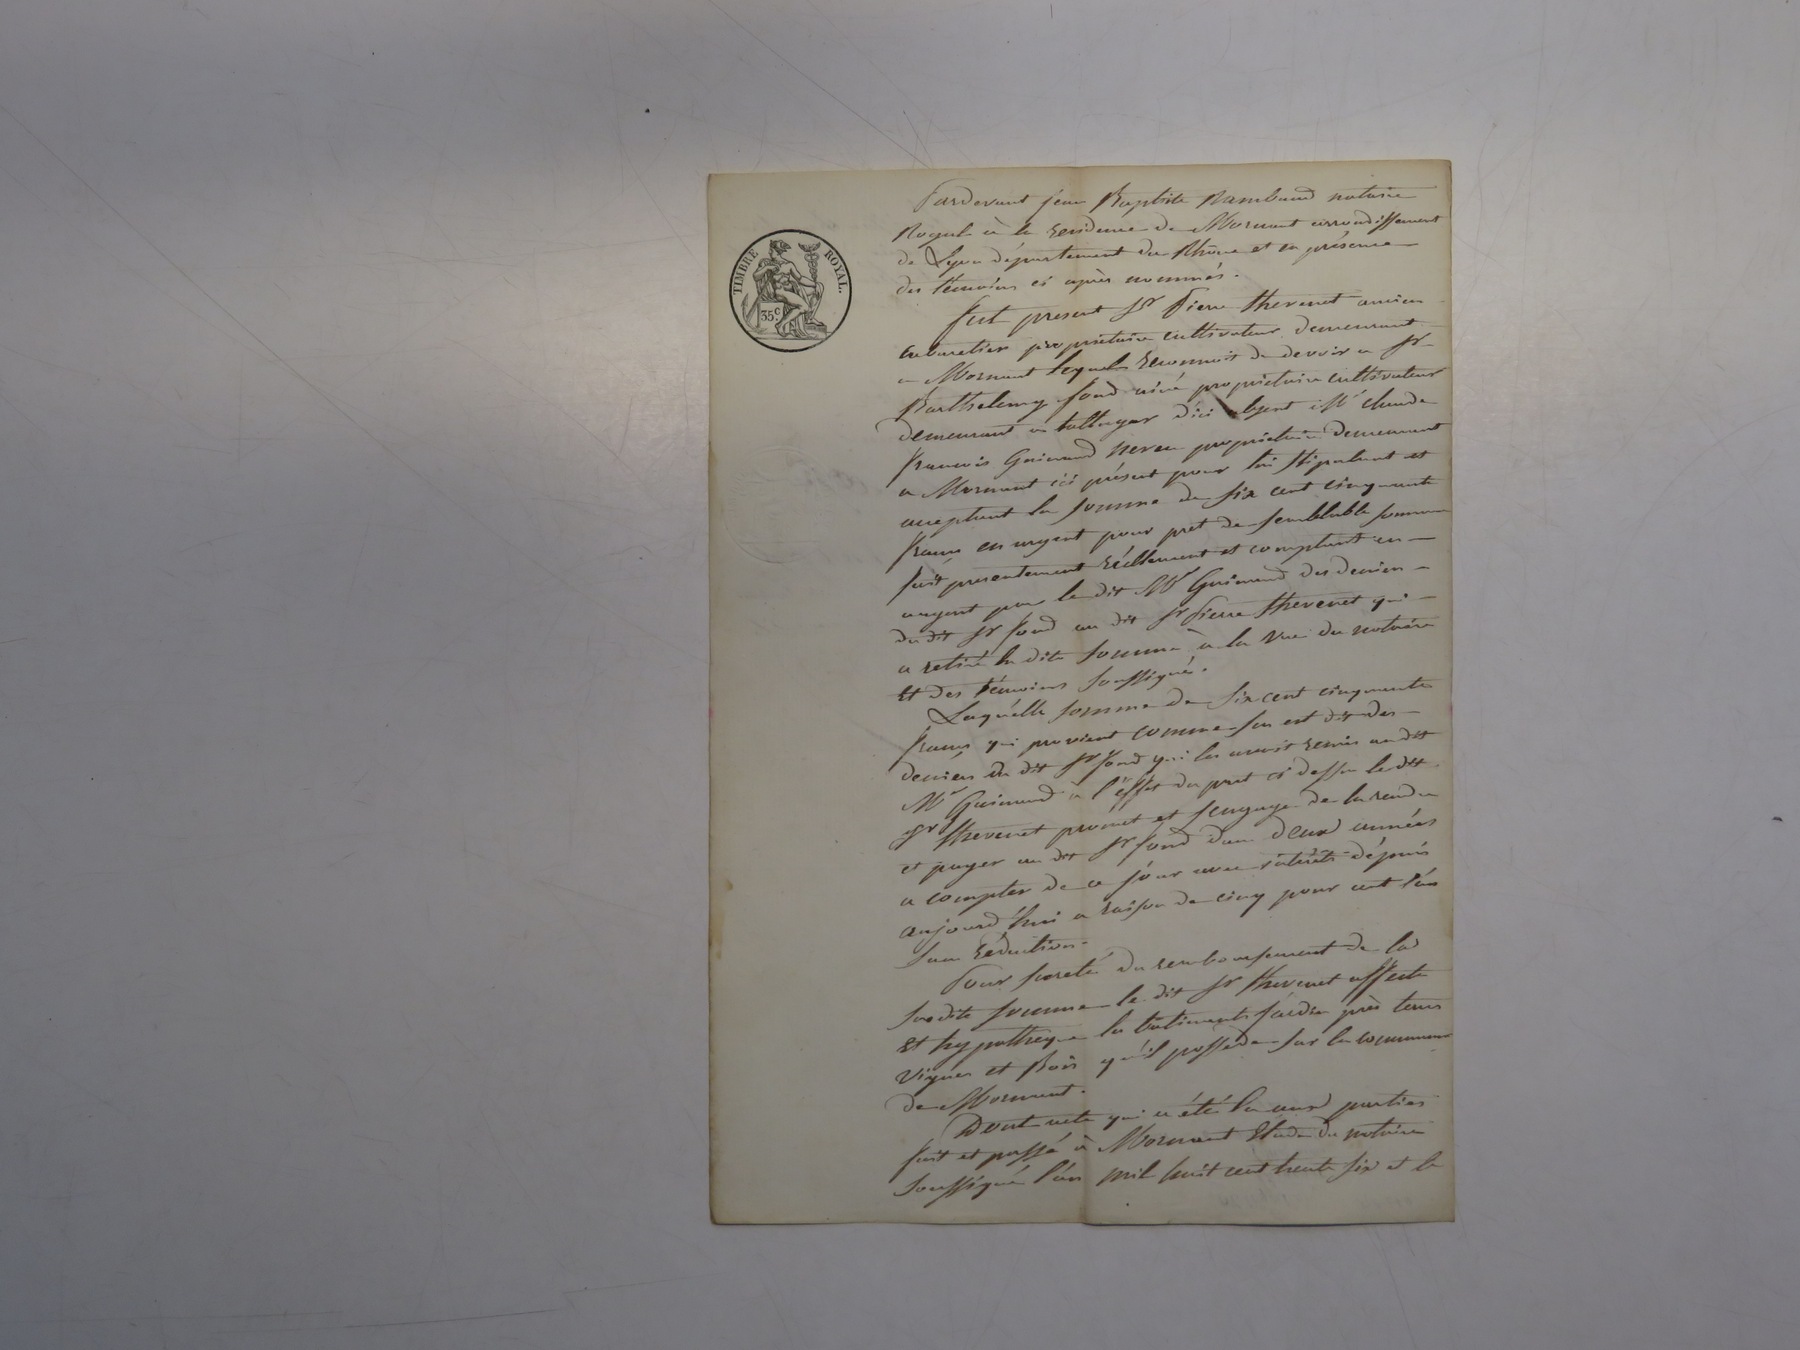 TIMBRE ROYAL.
35 c.
Pardevant Jean Baptiste Rambaud notaire
Royal à la residence de Mornant arrondissement
de Lyon département du Rhône et en présence
des témoins ci après nommés.
fut present Sr Pierre thevenet ancien
cabaretier propriétaire cultivateur demeurant
a Mornant lequel reconnoit de devoir a Sr
Barthelemy fond ainé propriétaire cultivateur
demeurant a talluyer d'ici absent Mr Claude
françois Guinand neveu propriétaire demeurant
a Mornant ici présent pour lui stipulant et
acceptant la somme de six cent cinquante
francs en argent pour pret de semblable somme
fait presentement réellement et comptant en
argent par le dit Mr Guinand des deniers
du dit Sr fond au dit Sr Pierre thevenet qui
a retiré la dite somme à la vue du notaire
Et des témoins soussignés.
Laquelle somme de six cent cinquante
francs qui provient comme sus est dit des
deniers du dit Sr fond qui les avoit remis au dit
Mr Guinand à l'effet du pret ci dessus le dit
Sr thevenet promet et s'engage de la rendre
et payer au dit Sr fond dans deux années
a compter de ce jour avec intérêts dépuis
aujourd'hui a raison de cinq pour cent l'an
sans réduction.
Pour sureté du remboursement de la
susdite somme le dit Sr thevenet affecte
Et hypothèque les batiments jardin près terres
vignes et Bois qu'il possède sur la commune
de Mornant.
Dont acte qui a été lu aux parties
fait et passé à Mornant Etude du notaire
soussigné l'an mil huit cent trente six et le